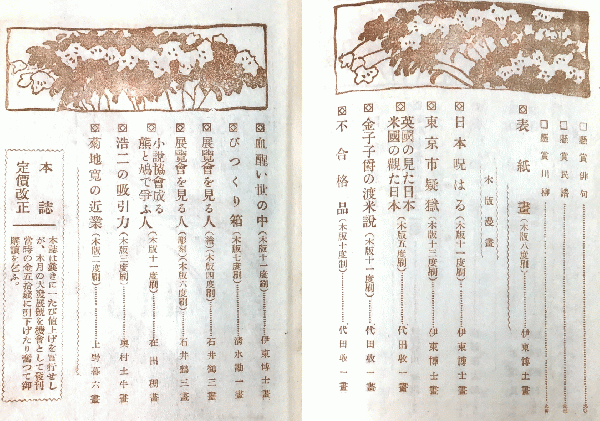 □懸賞俳句
□懸賞民謠
□懸賞川柳
表紙畫（木版八度刷）伊東博士畫
木版漫畫
日本呪はる（木版十一度刷）伊東博士畫
東京市疑獄（木版十二度刷）伊東博士畫
英國の見た日本
米國の觀た日本（木版五度刷）代田收一畫
金子子爵の渡米説（木版十一度刷）代田收一畫
不合格品（木版十度刷）代田收一畫
血醒い世の中（木版十一度刷）伊東博士畫
びつくり箱（木版七度刷）清水勘一畫
展覽會を見る人（繪）（木版四度刷）石井鶴三畫
展覽會を見る人（彫刻）（木版六度刷）石井鶴三畫
小説協會成る
熊と鳩で爭ふ人（木版十一度刷）在田稠畫
浩二の吸引力（木版二度刷）奥村土牛畫
菊地寛の近業（木版二度刷）上野喜六畫
本誌
定價改正
本誌は曩きに一たび値上げを實行せし
が、本月の大發展號を機會として復刊
當時の金五拾錢に引下げたり奮つて御
購讀を乞ふ。